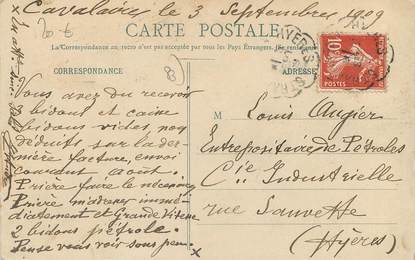 Cavalaire le 3 Septembre 1909
CARTE POSTALE
La Correspondance au recto n'est pas acceptée par tous les Pays Étrangers.
CORRESPONDANCE
ADRESSE
10
POSTES
Vous avez du recevoir
3 bidons et caisse
bidons vides non
deduits sur la der-
nière facture, envoi
courant août.
Prière faire le nécessaire
Prière m'adresser immé-
diatement et Grande Vitesse
2 bidons pétrole.
Pense vous voir sous peu.
M Louis Augier
Entrepositaire de Pétroles
Cie Industrielle
rue Sauvette
(Hyères)